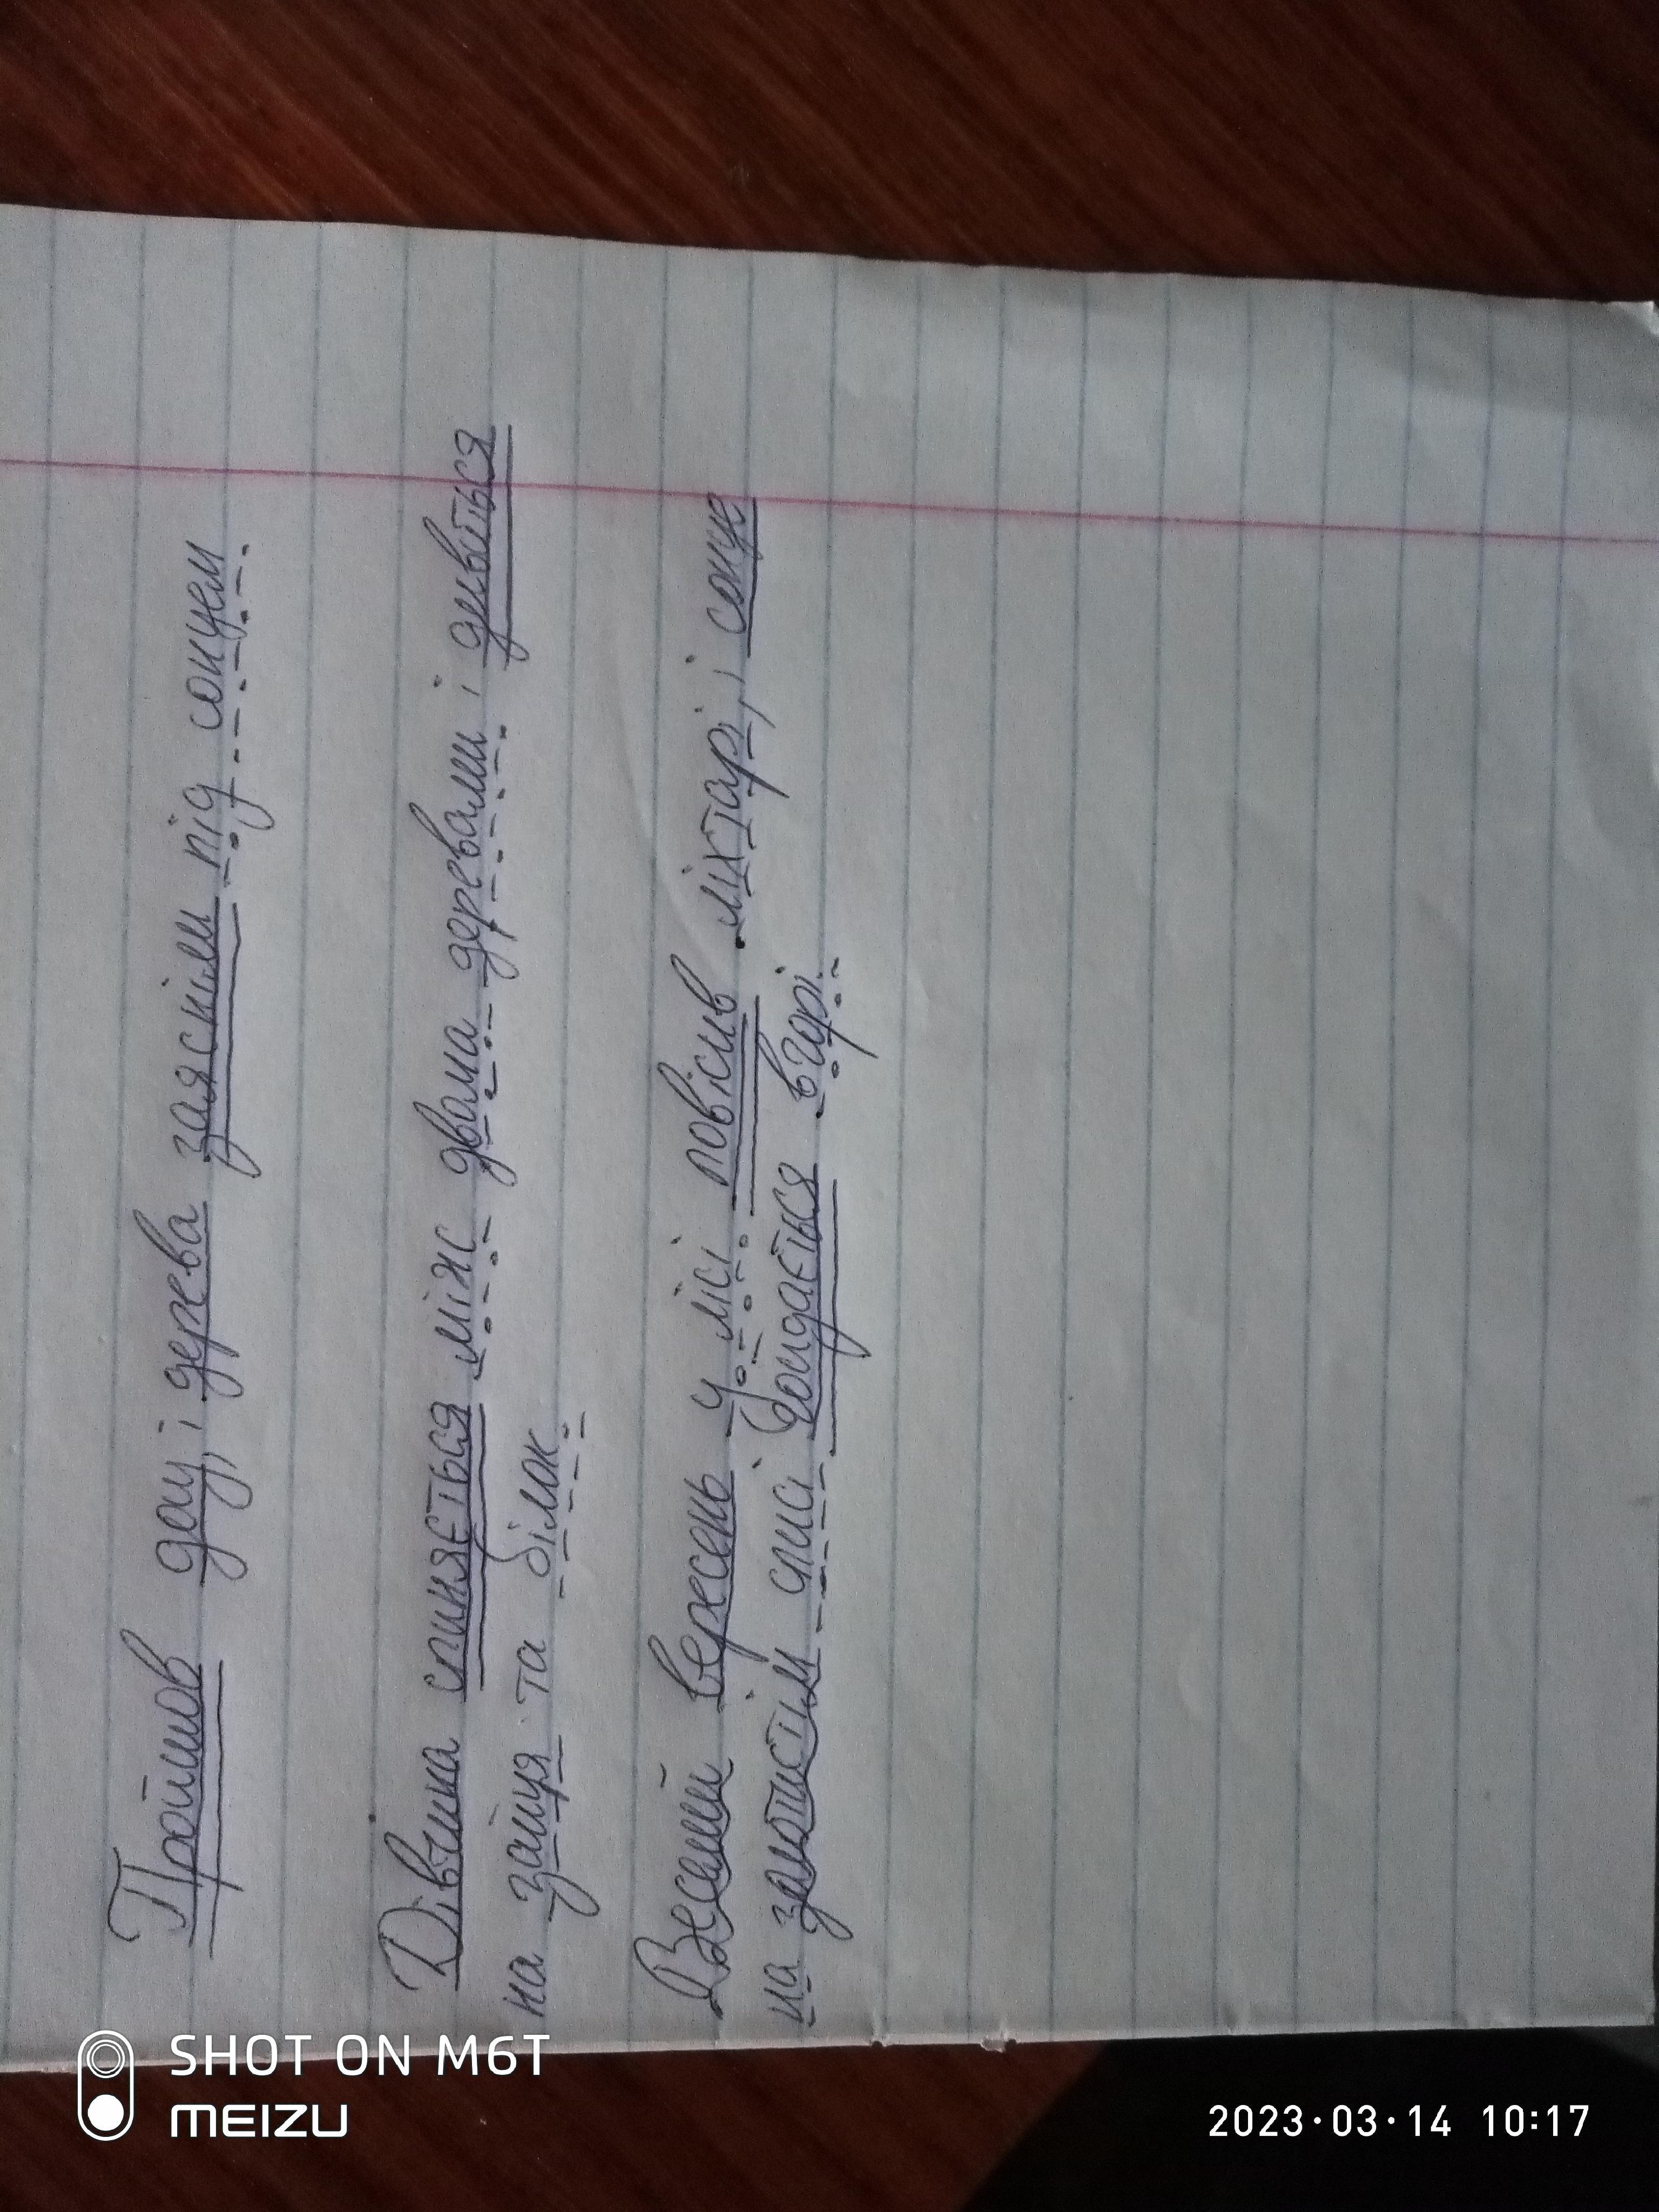 Пройшов дощ, і дерева заясніли під сонцем
Дівчина спиняється між двома деревами і дивиться
на зайця та білок.
Веселий вересень у лісі повісив ліхтарі, і сонце
на золотистім списі гойдається вгорі.
SHOT ON M6T
MEIZU
2023·03·14 10:17